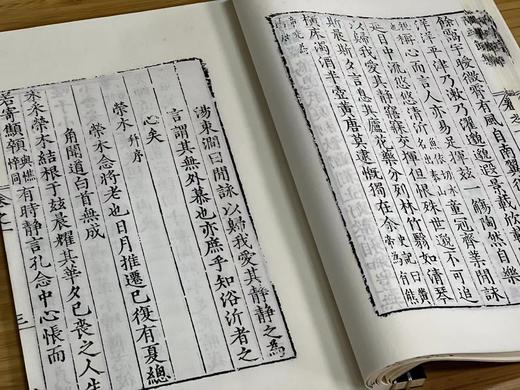 餘靄宇曖微霄有風自南翼彼
洋洋平津乃漱乃濯邈邈遐景載欣載
稱心而言人亦易足揮茲一觴陶然自樂
延目中流悠悠清沂童冠齊業閒詠
以歸我愛其靜寤寐交揮但恨殊世邈不可追
斯晨斯夕言息其廬花藥分列林竹翳如清琴
橫床濁酒半壺黃唐莫逮慨獨在余
湯東澗曰閒詠以歸我愛其靜靜之為
言謂其無外慕也亦庶乎知浴沂者之
心矣
榮木 并序
榮木念將老也日月推遷已復有夏總
角聞道白首無成
采采榮木結根于茲晨耀其華夕已喪之人生
若寄顦顇與憔悴同有時靜言孔念中心悵而